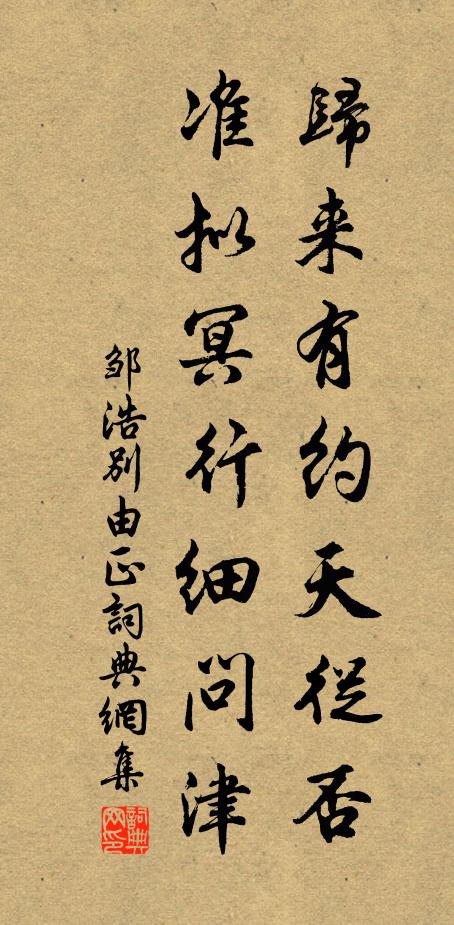 歸来有約天從否
准拟冥行细問津
邹浩别由正詞典網集
詞典網印